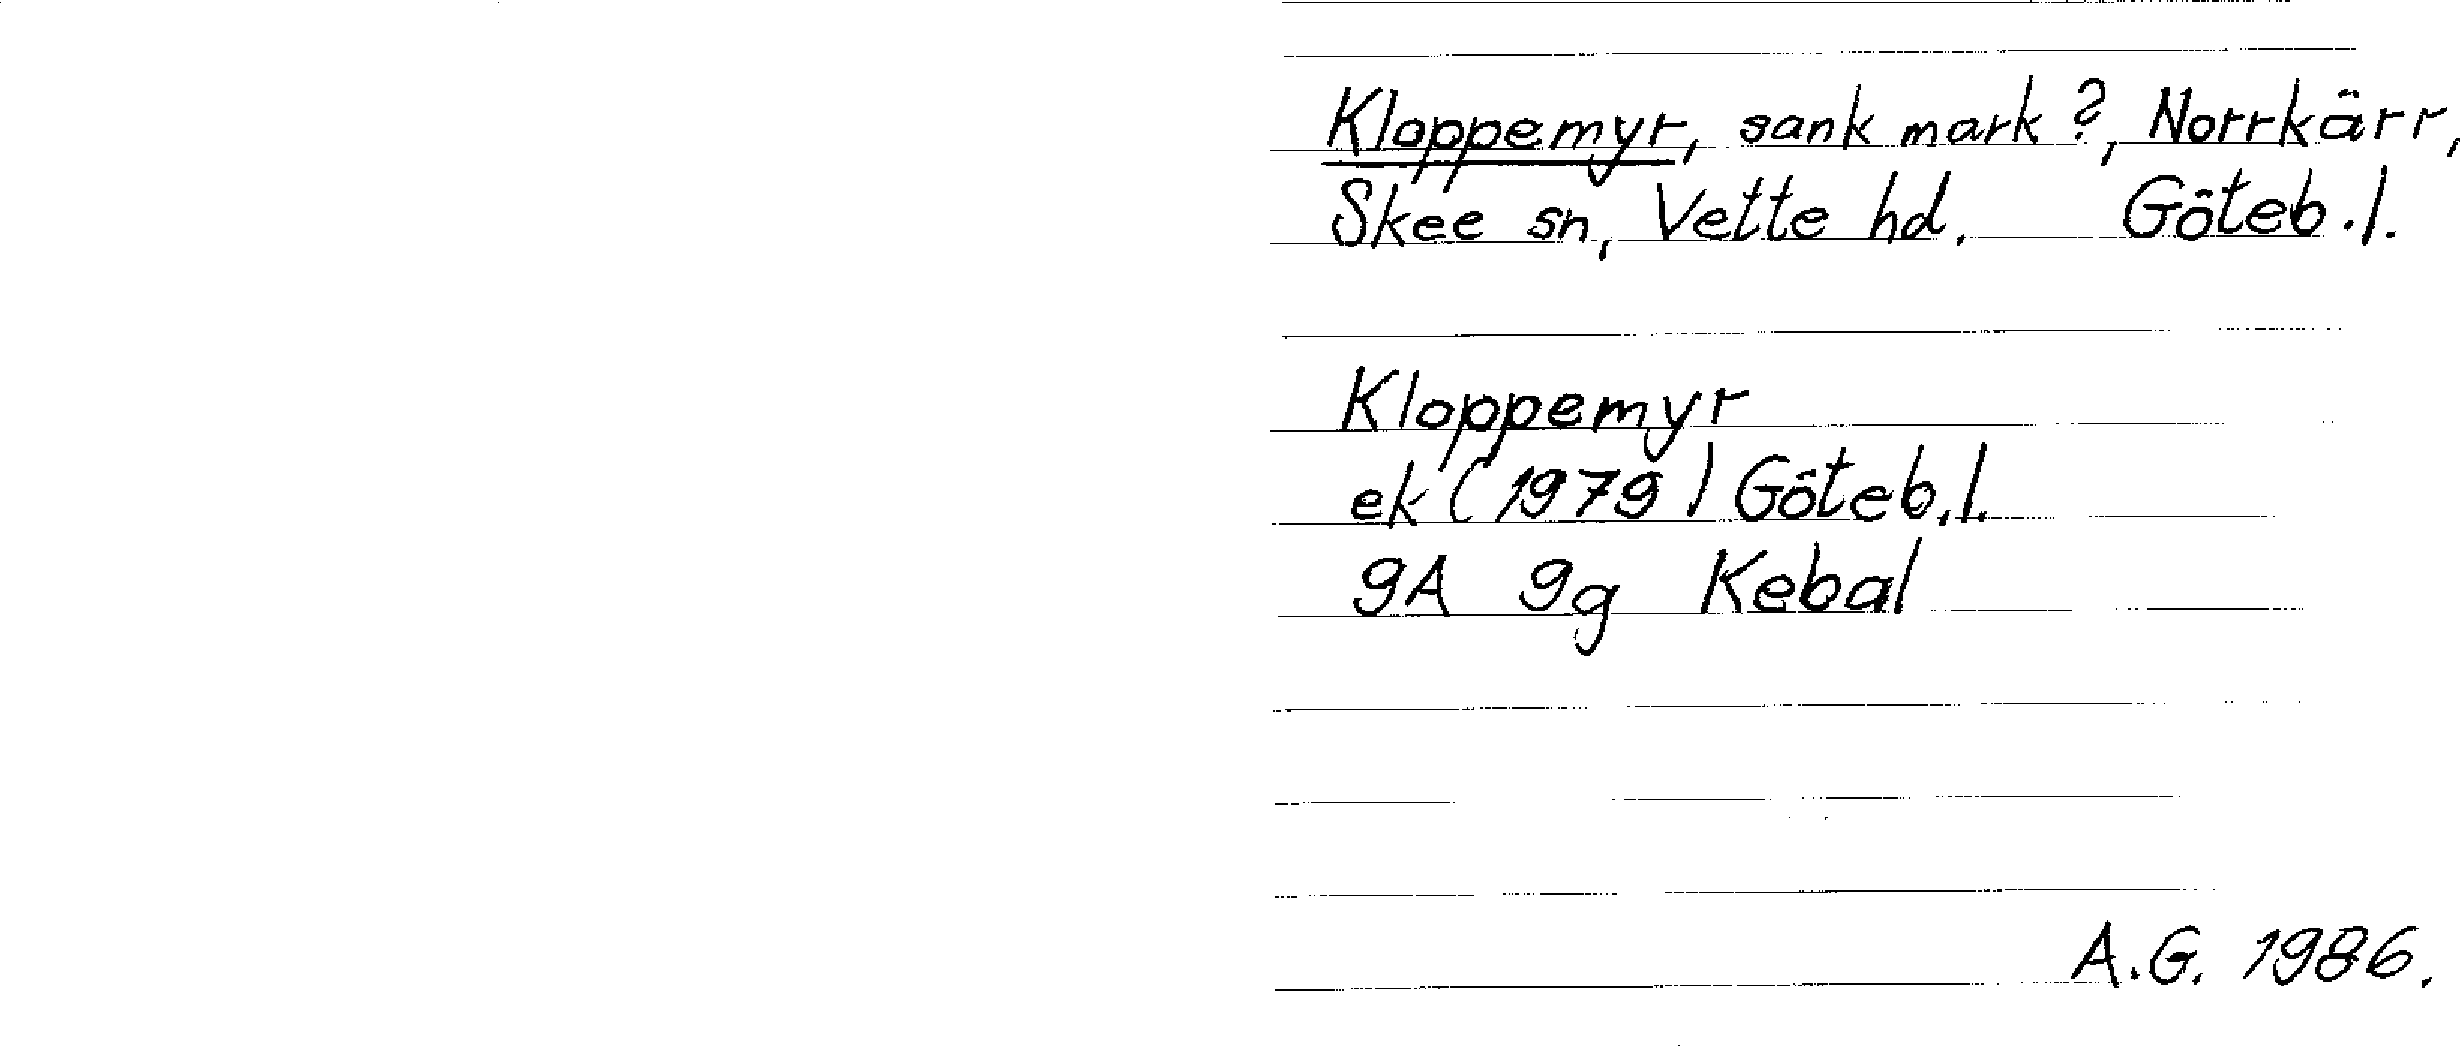 Kloppemyr, sank mark?, Norrkärr,
Skee sn, Vette hd. Göteb.l.
Kloppemyr
ek (1979) Göteb.l.
9A 9g Kebal
A.G. 1986.